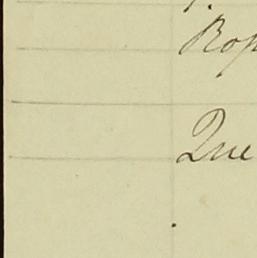 Rop
Que